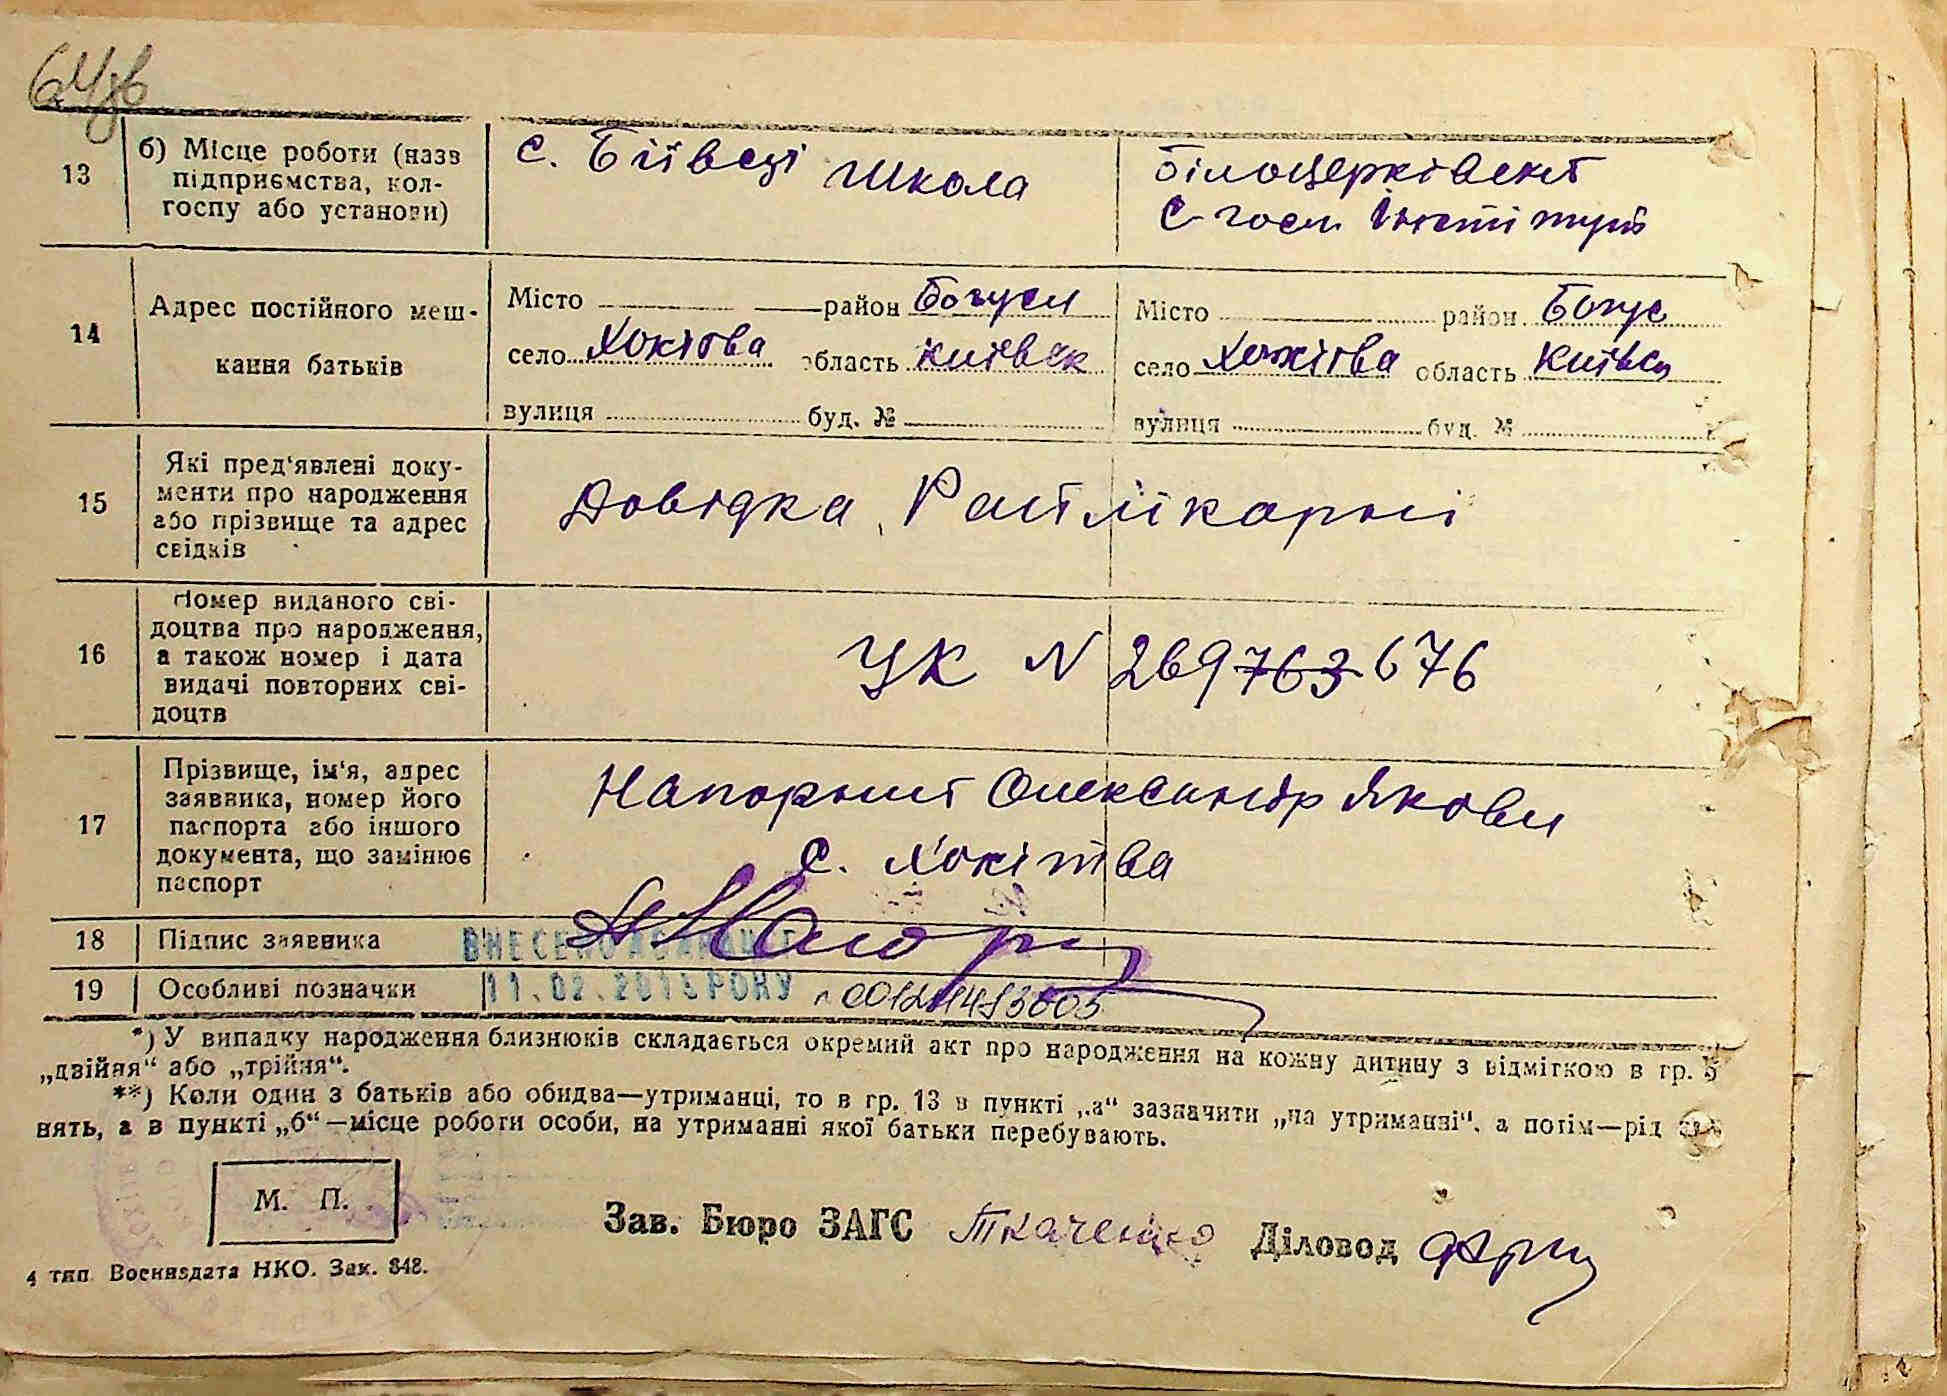 13
б) Місце роботи (назв
підприємства, кол-
госпу або установи)
с. Біївці школа
Білоцерківськ
С-госп інститут
14
Адрес постійного меш-
кання батьків
Місто район Богусл
село Хохітва область Київськ
вулиця буд. №
Місто район Богус
село Хохітва область Київс
вулиця буд. №
15
Які пред'явлені доку-
менти про народження
або прізвище та адрес
свідків
Довідка Райлікарні
16
Номер виданого сві-
доцтва про народження,
а також номер і дата
видачі повторних сві-
доцтв
УК N 269763 676
17
Прізвище, ім'я, адрес
заявника, номер його
паспорта або іншого
документа, що замінює
паспорт
Олександр Якови
с. Хохітва
18
Підпис заявника
19
Особливі позначки
РОКУ
*) У випадку народження близнюків складається окремий акт про народження на кожну дитину з відміткою в гр. 5
„двійня“ або „трійня“.
**) Коли один з батьків або обидва—утриманці, то в гр. 13 в пункті „а“ зазначити „на утриманні“, а потім—рід
нять, а в пункті „б“—місце роботи особи, на утриманні якої батьки перебувають.
М. П.
Зав. Бюро ЗАГС Ткаченко Діловод
4 тип. Воениздата НКО. Зак. 848.